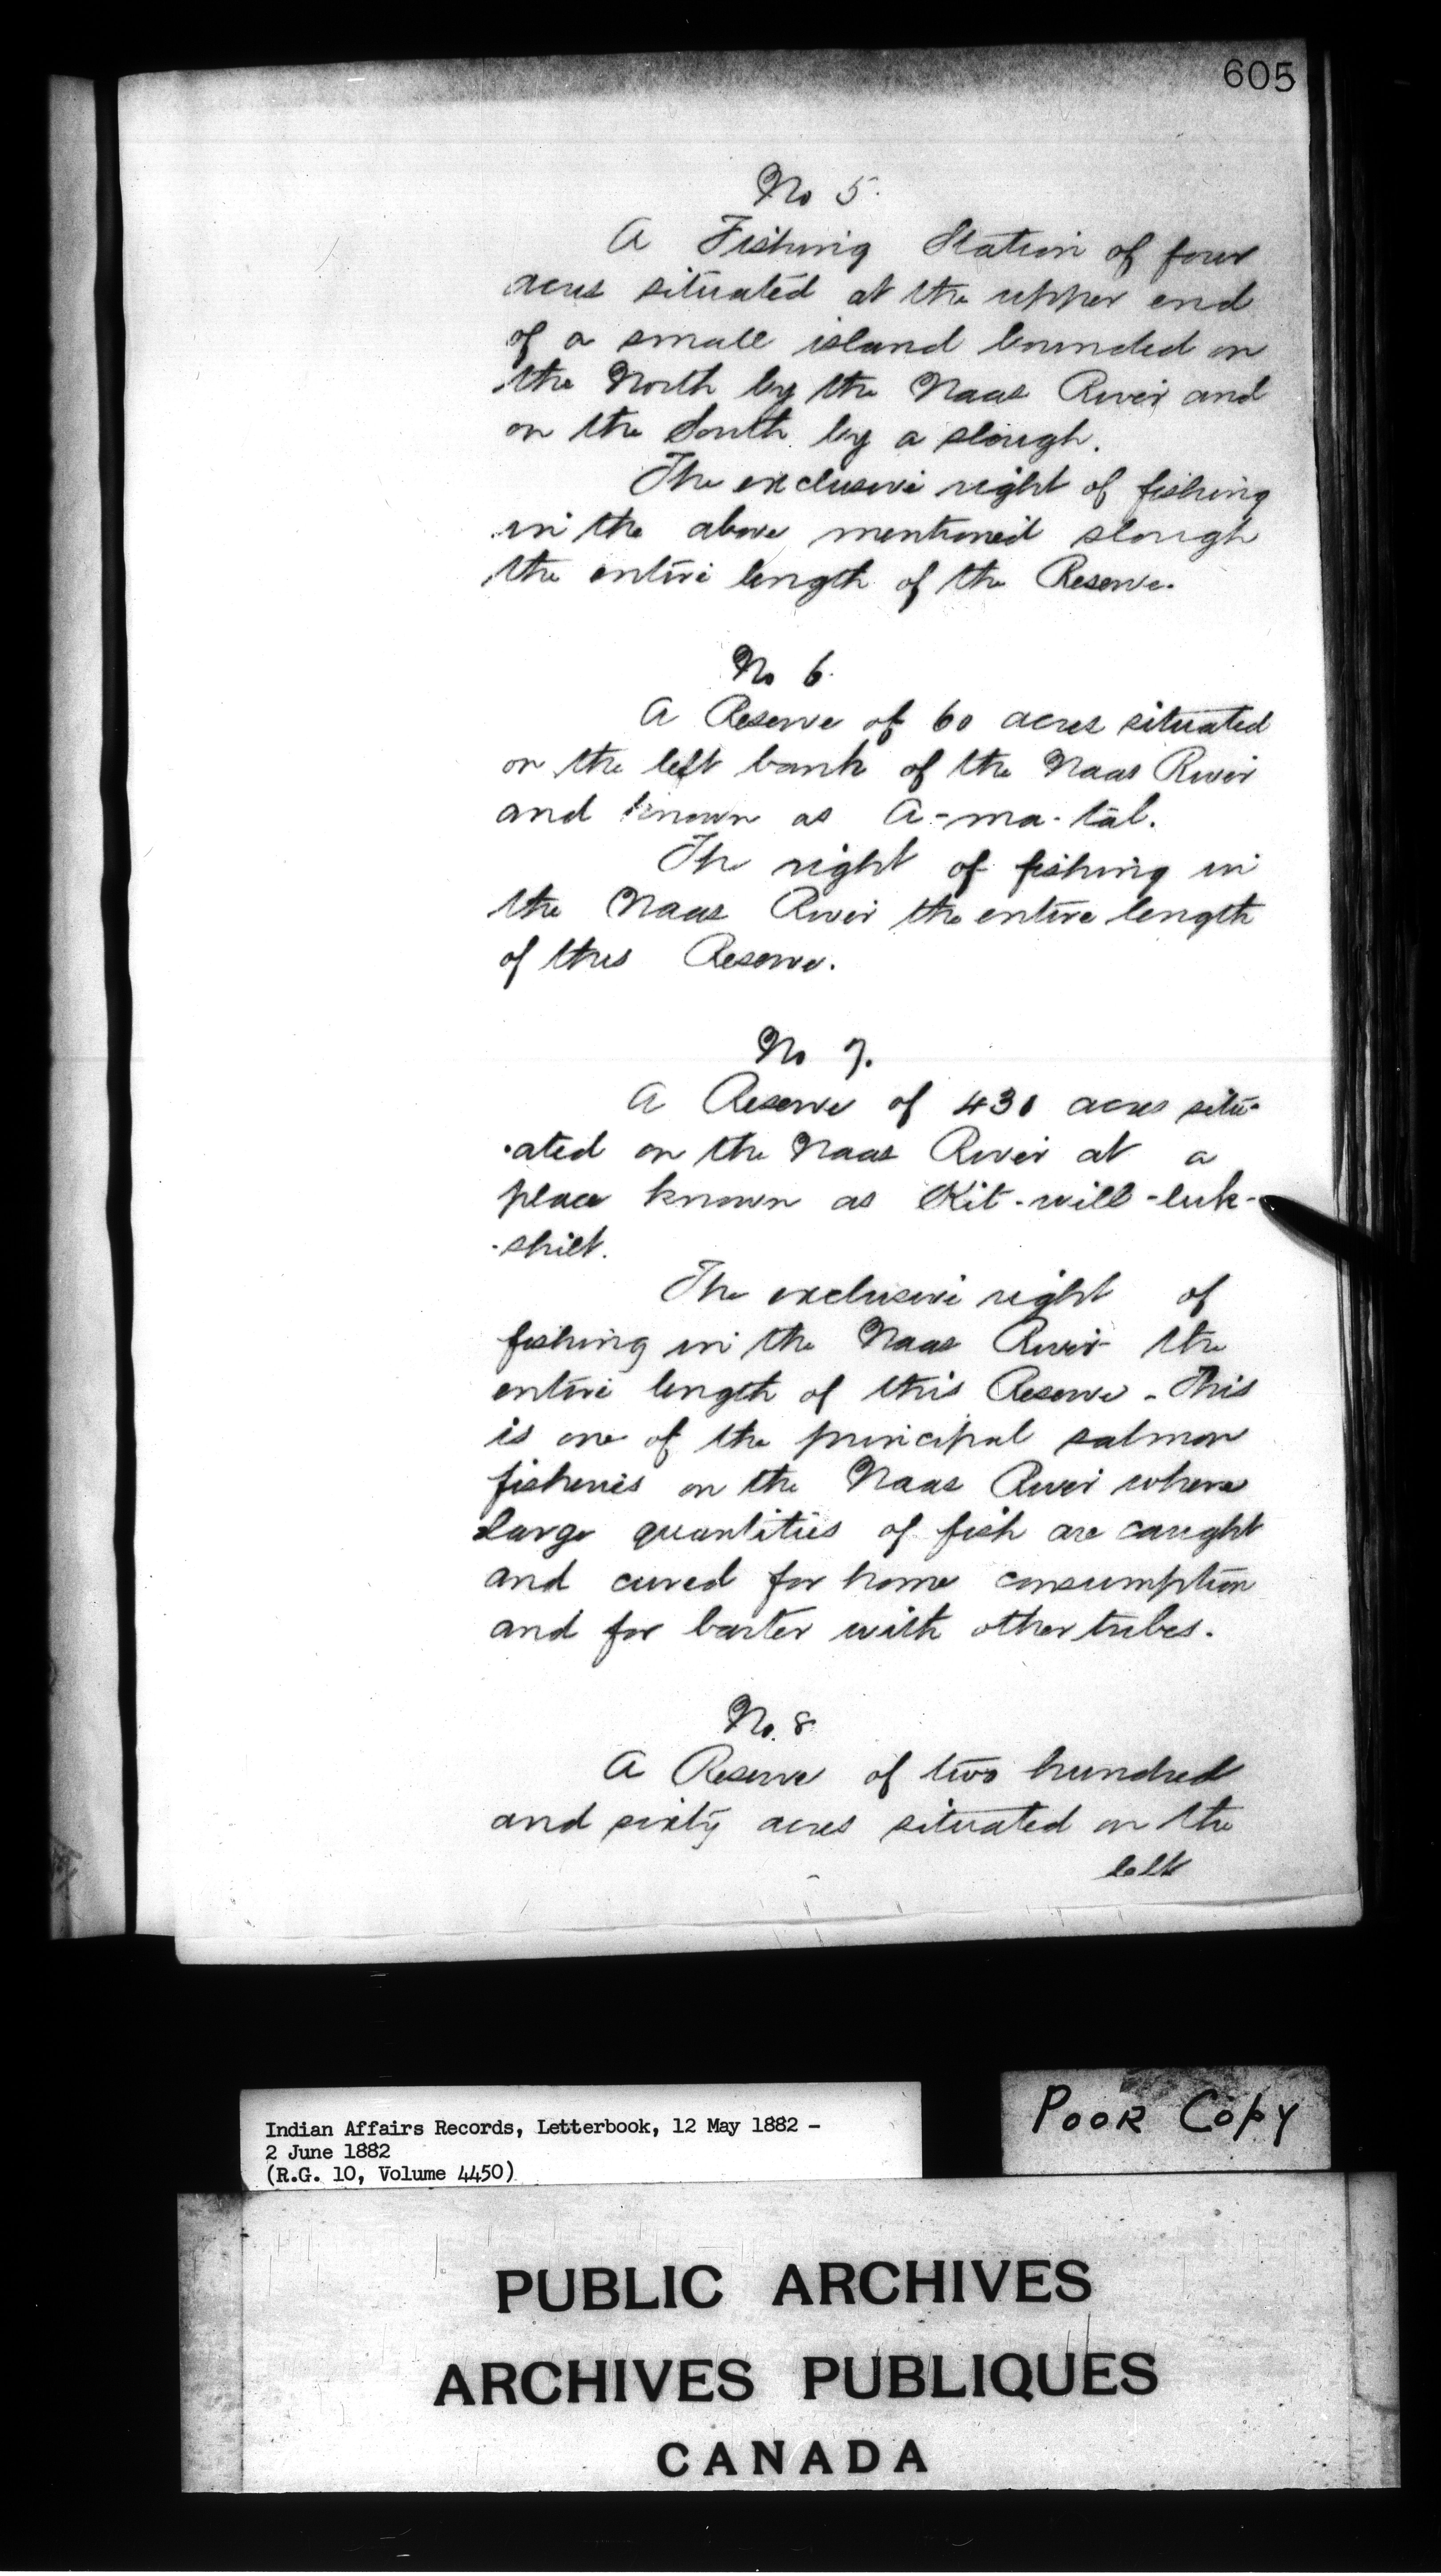 605
No 5.
A Fishing Station of four
acres situated at the upper end
of a small island bounded on
the North by the Naas River and
on the South by a slough.
The exclusive right of fishing
in the above mentioned slough
the entire length of the Reserve.
No 6.
A Reserve of 60 acres situated
on the left bank of the Naas River
and known as A-ma-tal.
The right of fishing in
the Naas River the entire length
of this Reserve.
No 7.
A Reserve of 430 acres situ-
-ated on the Naas River at a
place known as Kit-will-luk-
-shilt.
The exclusive right of
fishing in the Naas River the
entire length of this Reserve - This
is one of the principal salmon
fisheries on the Naas River where
large quantities of fish are caught
and cured for home consumption
and for barter with other tribes.
No. 8
A Reserve of two hundred
and sixty acres situated on the
left
Indian Affairs Records, Letterbook, 12 May 1882 -
2 June 1882
(R.G. 10, Volume 4450)
POOR COPY
PUBLIC ARCHIVES
ARCHIVES PUBLIQUES
CANADA